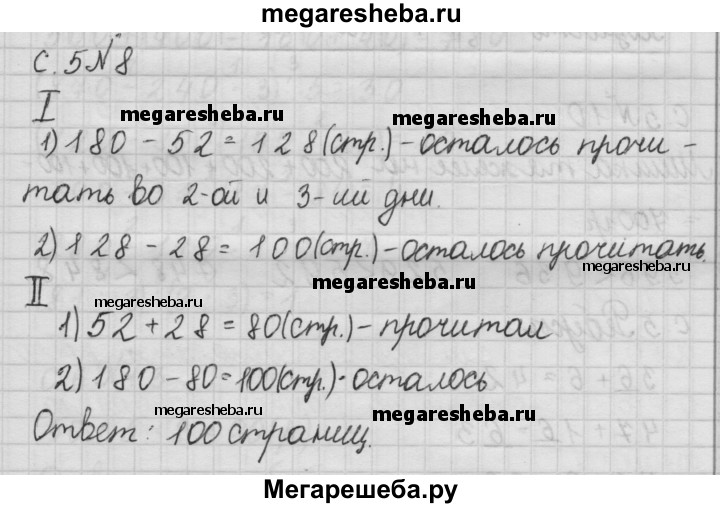 megaresheba.ru
с. 5 № 8
I
megaresheba.ru
megaresheba.ru
1) 180 - 52 = 128 (стр.) - осталось прочи -
тать во 2-ой и 3-ий дни.
2) 128 - 28 = 100 (стр.) - осталось прочитать.
megaresheba.ru
II
megaresheba.ru
megaresheba.ru
1) 52 + 28 = 80 (стр.) - прочитал
2) 180 - 80 = 100 (стр.) - осталось
megaresheba.ru
megaresheba.ru
Ответ: 100 страниц.
Мегарешеба.ру